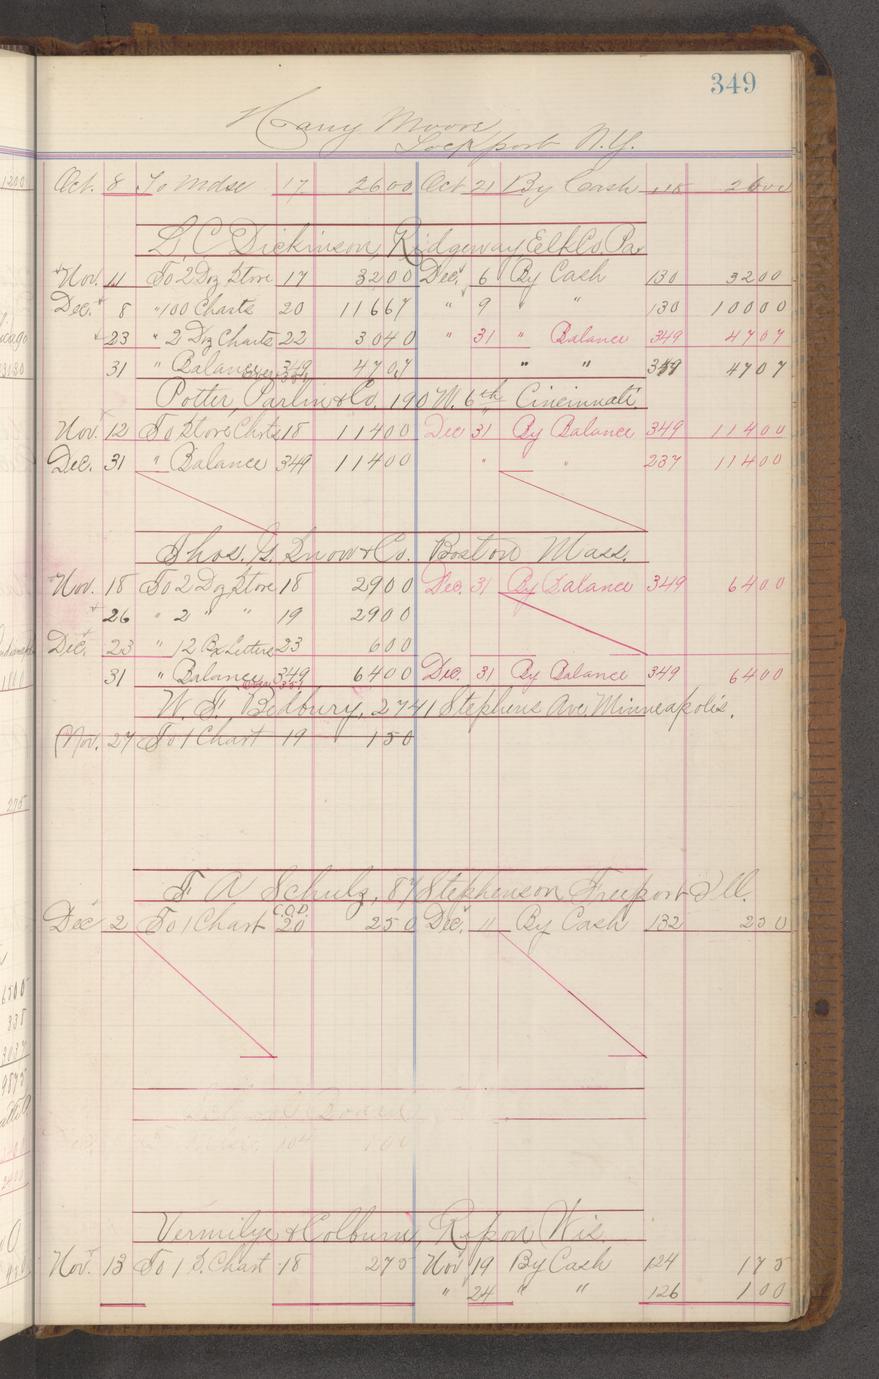 349
Harry Moore
Lockport N.Y.
Oct. 8 To Mdse 17 2600 Oct 21 By Cash 118 2600
L. C. Dickinson, Ridgeway Elk Co. Pa
Nov. 11 To 2 Doz Store 17 3200 Dec. 6 By Cash 130 3200
Dec. 8 " 100 Charts 20 11667 " 9 " " 130 10000
23 " 2 Doz Charts 22 3040 " 31 " Balance 349 4707
31 " Balance 349 4707 " " 349 4707
Potter, Parlin & Co. 190 W. 6th Cincinnati.
Nov. 12 To Store Charts 18 11400 Dec 31 By Balance 349 11400
Dec. 31 " Balance 349 11400 " " 237 11400
Thos. G. Snow & Co. Boston Mass.
Nov. 18 To 2 Doz Store 18 2900 Dec. 31 By Balance 349 6400
26 " 2 " " 19 2900
Dec. 23 " 12 Bx Letters 23 600
31 " Balance 349 6400 Dec. 31 By Balance 349 6400
W. F. Bedbury, 2741 Stephens Ave Minneapolis.
Nov. 27 To 1 Chart 19 150
F A Schulz, 87 Stephenson Freeport Ill.
C.O.D.
Dec 2 To 1 Chart 20 250 Dec. 11 By Cash 132 250
Vermilye & Colburn, Ripon Wis.
Nov. 13 To 1 S. Chart 18 275 Nov 19 By Cash 124 175
" 24 " " 126 100